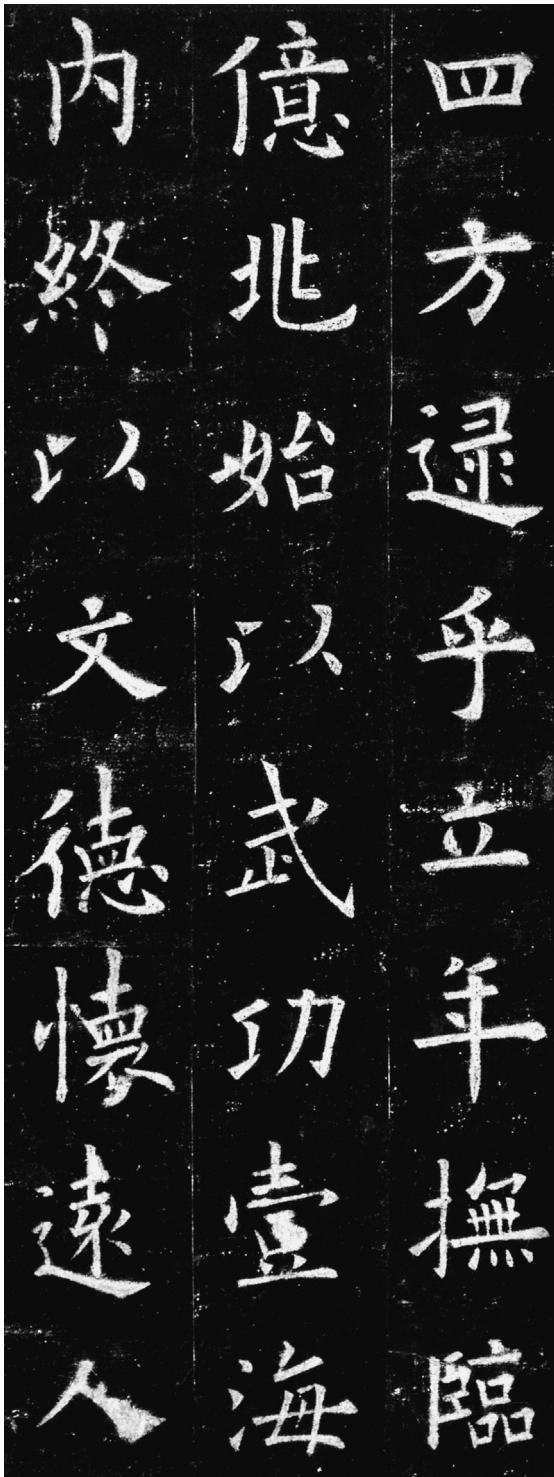 四方逯乎立年撫臨
億兆始以武功壹海
内終以文德懷遠人